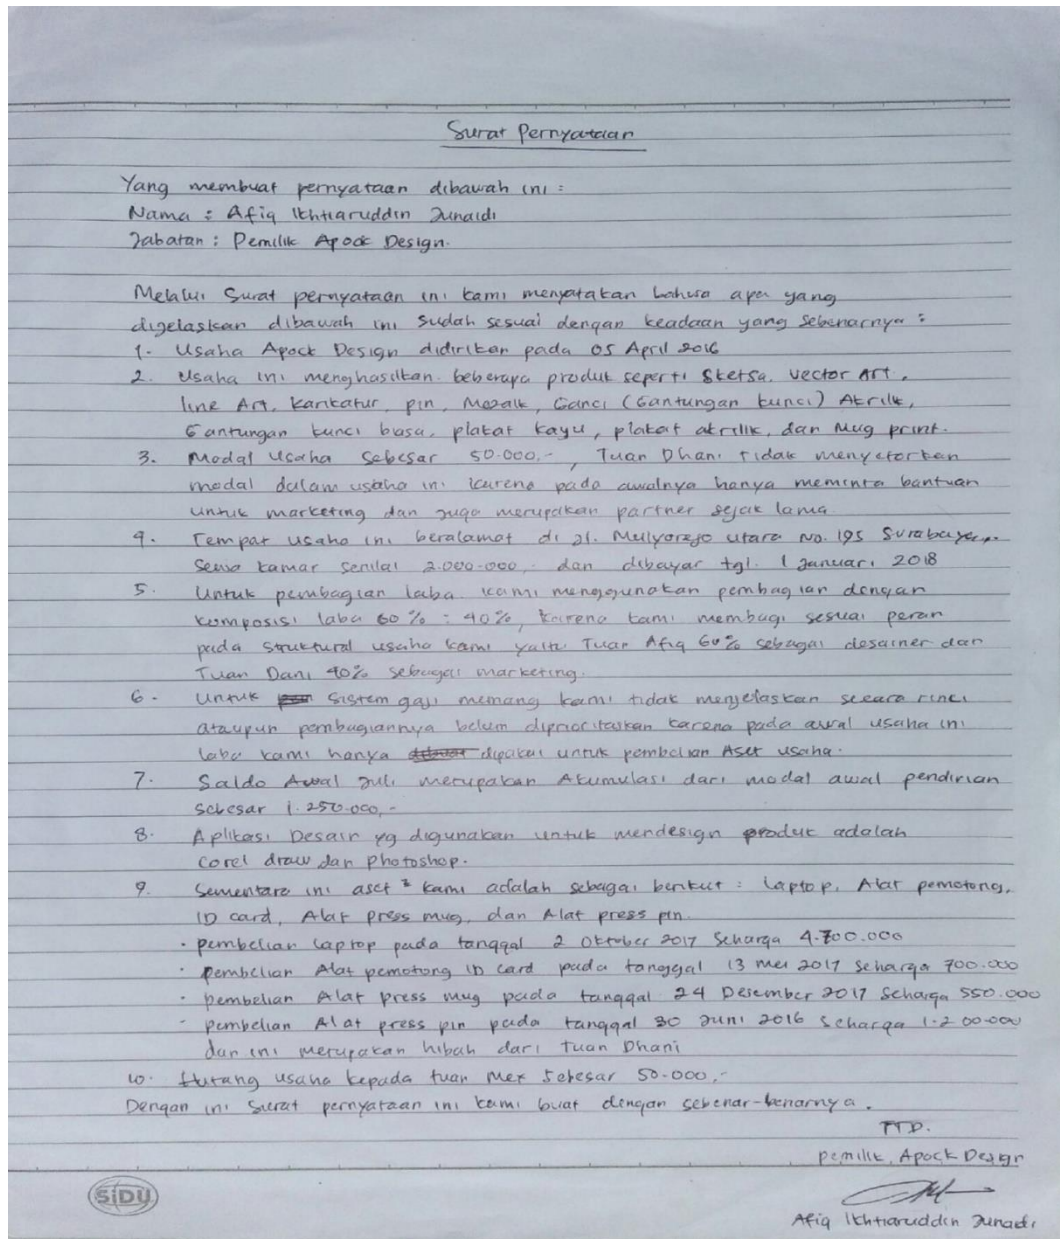 Surat Pernyataan
Yang membuat pernyataan dibawah ini :
Nama : Afiq Ikhtiaruddin Junaidi
Jabatan : Pemilik Apock Design.
Melalui Surat pernyataan ini kami menyatakan bahwa apa yang
dijelaskan dibawah ini sudah sesuai dengan keadaan yang sebenarnya :
1. Usaha Apock Design didirikan pada 05 April 2016
2. Usaha ini menghasilkan beberapa produk seperti Sketsa, Vector Art,
line Art, Karikatur, pin, Mozaik, Ganci (Gantungan kunci) Akrilik,
Gantungan kunci biasa, plakat kayu, plakat akrilik, dan Mug print.
3. Modal Usaha Sebesar 50.000,-, Tuan Dhani tidak menyetorkan
modal dalam usaha ini karena pada awalnya hanya meminta bantuan
untuk marketing dan juga merupakan partner sejak lama.
4. Tempat usaha ini beralamat di Jl. Mulyorejo utara No. 195 Surabaya,
Sewa kamar senilai 2.000.000,- dan dibayar tgl. 1 Januari 2018
5. Untuk pembagian laba kami menggunakan pembagian dengan
komposisi laba 60% : 40%, karena kami membagi sesuai peran
pada struktural usaha kami yaitu Tuan Afiq 60% sebagai desainer dan
Tuan Dani 40% sebagai marketing.
6. Untuk sistem gaji memang kami tidak menjelaskan secara rinci
ataupun pembagiannya belum diprioritaskan karena pada awal usaha ini
laba kami hanya dipakai untuk pembelian Aset usaha.
7. Saldo Awal Juli merupakan Akumulasi dari modal awal pendirian
sebesar 1.250.000,-
8. Aplikasi Desain yg digunakan untuk mendesign produk adalah
Corel draw dan Photoshop.
9. Sementara ini aset² kami adalah sebagai berikut : Laptop, Alat pemotong,
ID card, Alat Press mug, dan Alat press pin.
· pembelian laptop pada tanggal 2 Oktober 2017 Seharga 4.700.000
· pembelian Alat pemotong ID card pada tanggal 13 Mei 2017 seharga 700.000
· pembelian Alat press mug pada tanggal 24 Desember 2017 Seharga 550.000
- pembelian Alat press pin pada tanggal 30 Juni 2016 seharga 1.200.000
dan ini merupakan hibah dari tuan Dhani
10. Hutang usaha kepada tuan Mex sebesar 50.000,-
Dengan ini Surat pernyataan ini kami buat dengan sebenar-benarnya.
TTD.
Pemilik, Apock Design
Afiq Ikhtiaruddin Junaidi
SIDU